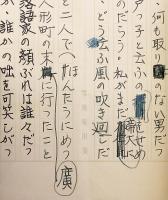 何も取り のない男だつ
戸つ子と云ふの せめ
のだらう。私がまだ
、どう云ふ風の吹き回しだ
と二人で ほんたうにめう
人形町の末 に行つたこと
廣
落語家の顔ぶれは誰々だつ
か、誰かの咄を可笑しがつ